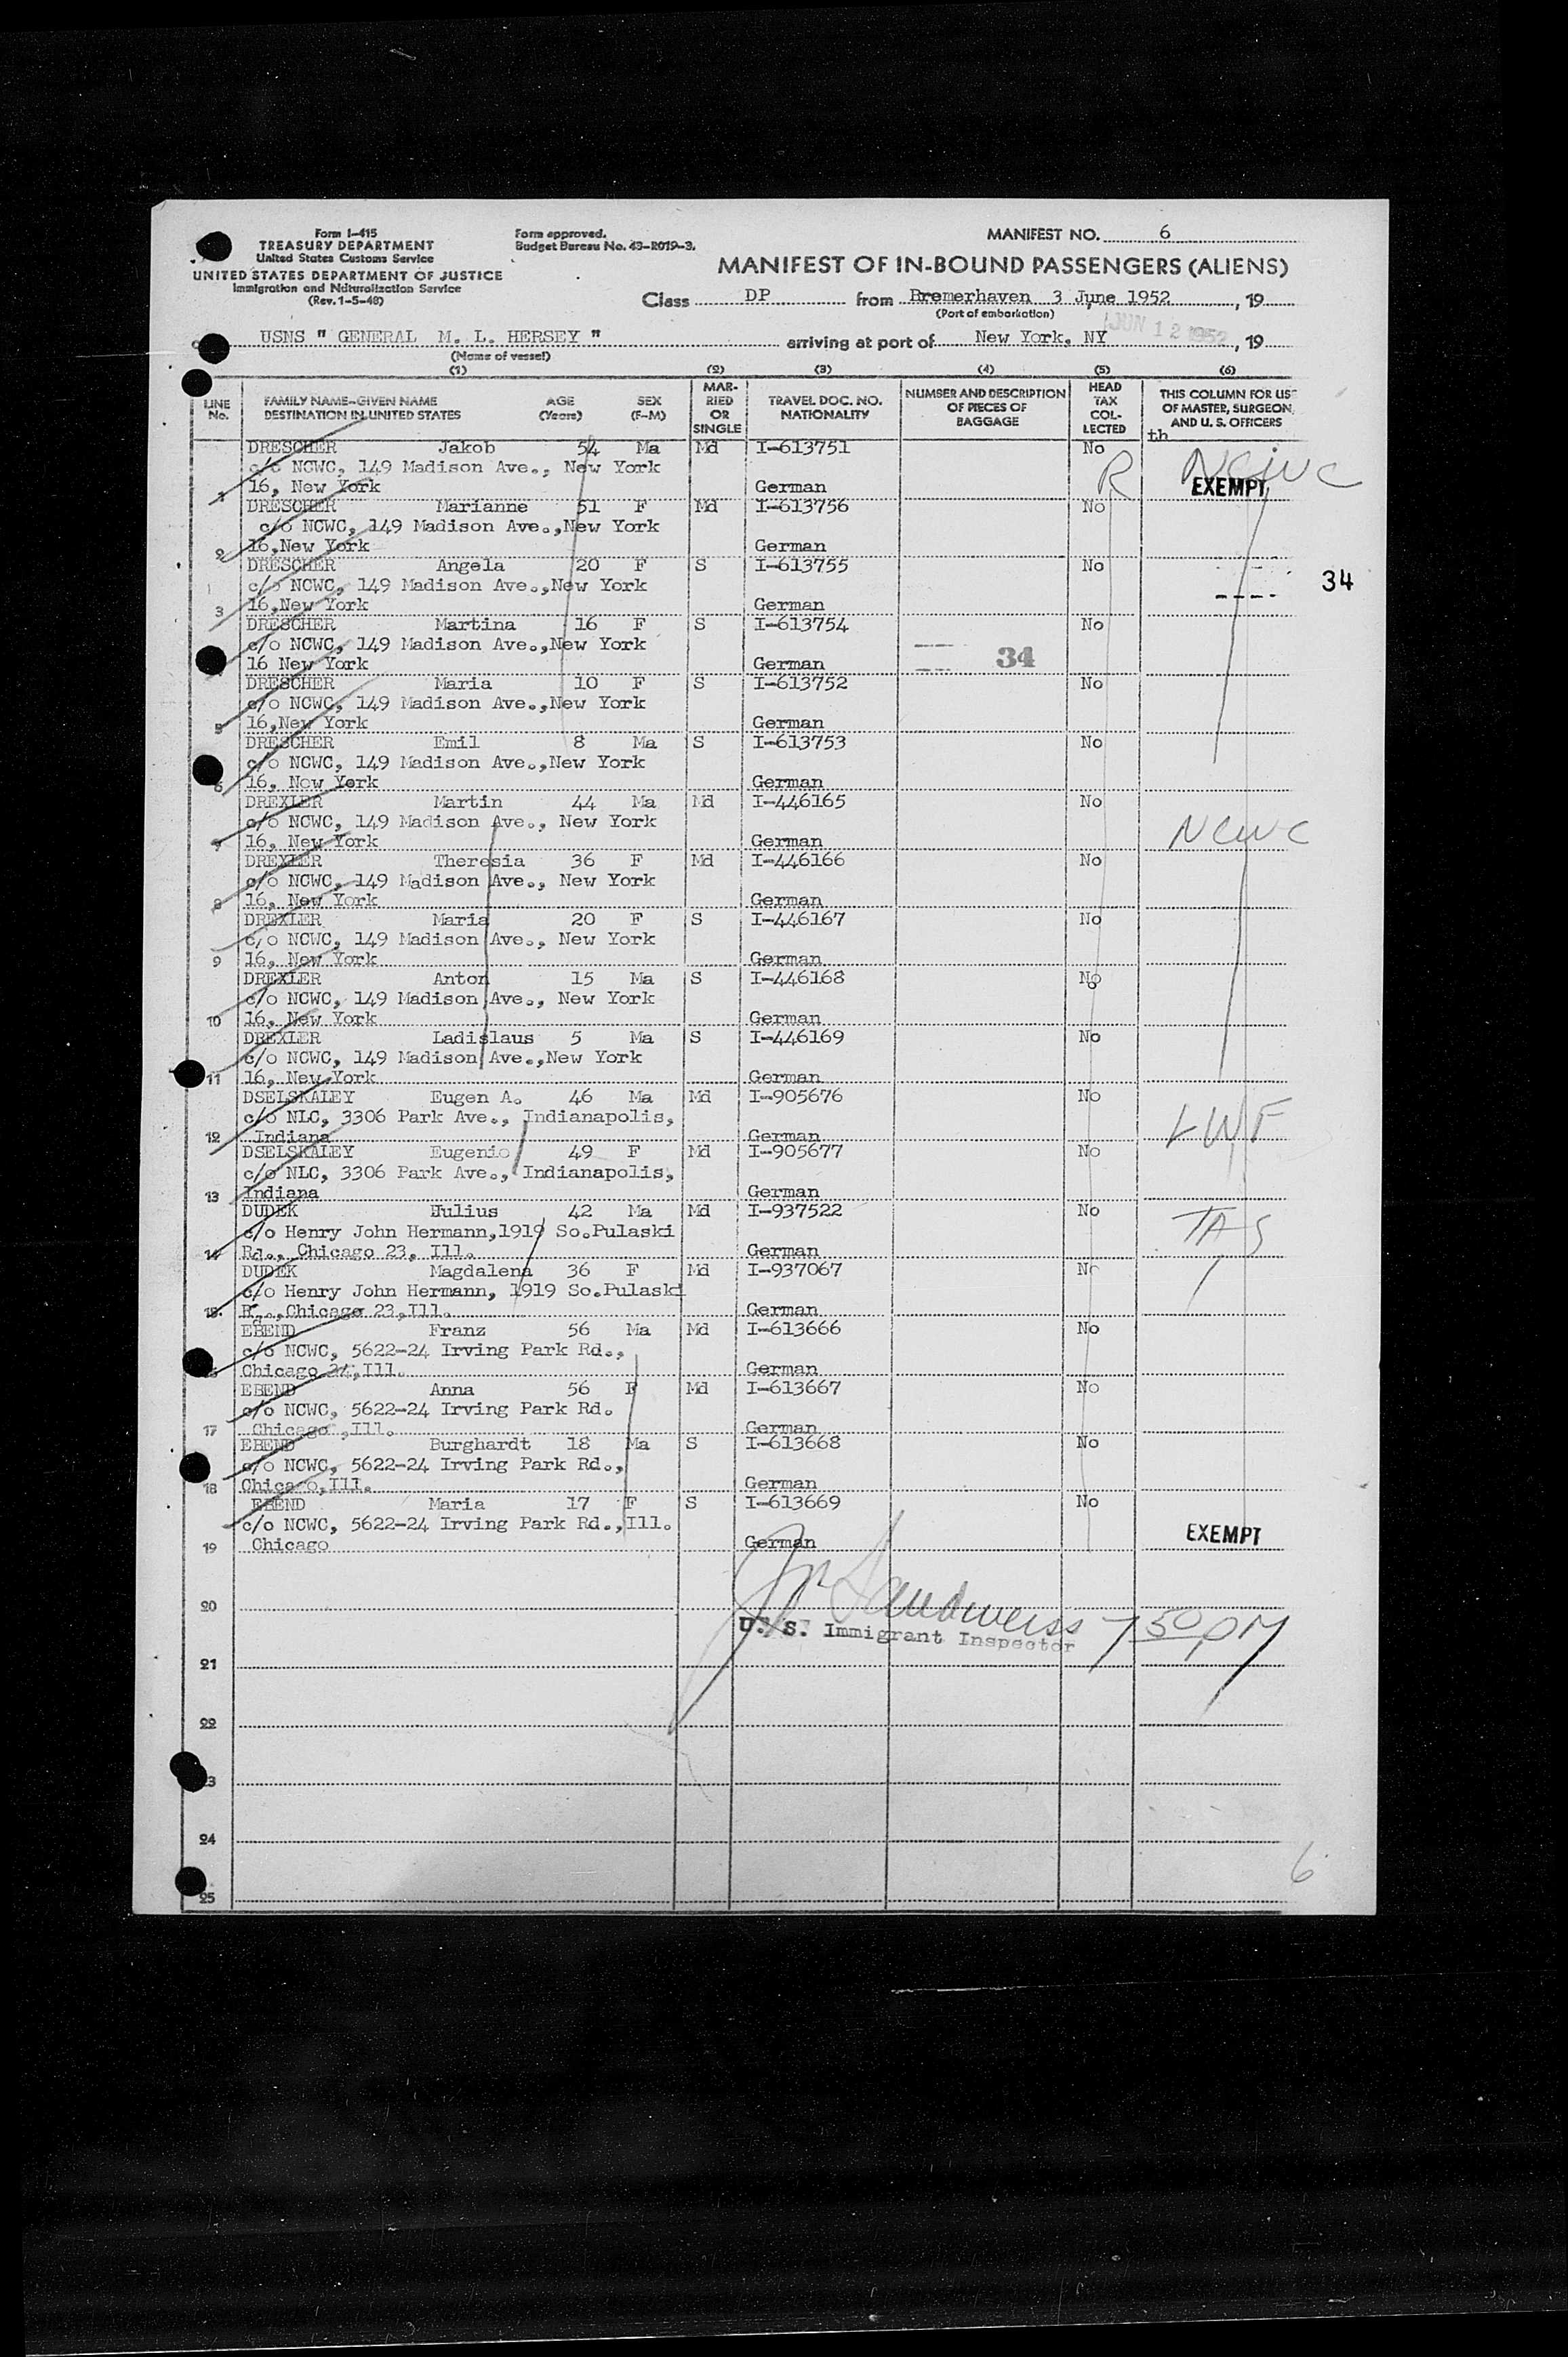 Form I-415
TREASURY DEPARTMENT
United States Customs Service
UNITED STATES DEPARTMENT OF JUSTICE
Immigration and Naturalization Service
(Rev. 1-5-48)
Form approved.
Budget Bureau No. 43-R019-3.
MANIFEST NO. 6
MANIFEST OF IN-BOUND PASSENGERS (ALIENS)
Class DP from Bremerhaven 3 June 1952, 19
(Port of embarkation)
USNS " GENERAL M. L. HERSEY " arriving at port of New York, NY JUN 12 1952, 19
(Name of vessel)
(1) (2) (3) (4) (5) (6)
LINE No. FAMILY NAME-GIVEN NAME DESTINATION IN UNITED STATES AGE (Years) SEX (F-M) MAR-RIED OR SINGLE TRAVEL DOC. NO. NATIONALITY NUMBER AND DESCRIPTION OF PIECES OF BAGGAGE HEAD TAX COL-LECTED THIS COLUMN FOR US OF MASTER, SURGEON, AND U. S. OFFICERS
th
DRESCHER Jakob 54 Ma Md I-613751 No
c/o NCWC, 149 Madison Ave., New York R NCWC
1 16, New York German EXEMPT
DRESCHER Marianne 51 F Md I-613756 No
c/o NCWC, 149 Madison Ave.,New York
2 16,New York German
DRESCHER Angela 20 F S I-613755 No
c/o NCWC, 149 Madison Ave.,New York 34
3 16,New York German
DRESCHER Martina 16 F S I-613754 No
c/o NCWC, 149 Madison Ave.,New York
16 New York German 34
DRESCHER Maria 10 F S I-613752 No
c/o NCWC, 149 Madison Ave.,New York
5 16,New York German
DRESCHER Emil 8 Ma S I-613753 No
c/o NCWC, 149 Madison Ave.,New York
6 16, New York German
DREXLER Martin 44 Ma Md I-446165 No
c/o NCWC, 149 Madison Ave., New York NCWC
7 16, New York German
DREXLER Theresia 36 F Md I-446166 No
c/o NCWC, 149 Madison Ave., New York
8 16, New York German
DREXLER Maria 20 F S I-446167 No
c/o NCWC, 149 Madison Ave., New York
9 16, New York German
DREXLER Anton 15 Ma S I-446168 No
c/o NCWC, 149 Madison Ave., New York
10 16, New York German
DREXLER Ladislaus 5 Ma S I-446169 No
c/o NCWC, 149 Madison Ave.,New York
11 16, New York German
DSELSKALEY Eugen A. 46 Ma Md I-905676 No
c/o NLC, 3306 Park Ave., Indianapolis, LWF
12 Indiana German
DSELSKALEY Eugenio 49 F Md I-905677 No
c/o NLC, 3306 Park Ave., Indianapolis,
13 Indiana German
DUDEK Julius 42 Ma Md I-937522 No
c/o Henry John Hermann,1919 So.Pulaski TAS
14 Rd., Chicago 23, Ill. German
DUDEK Magdalena 36 F Md I-937067 No
c/o Henry John Hermann, 1919 So.Pulaski
15. Rd.,Chicago 23,Ill. German
EBEND Franz 56 Ma Md I-613666 No
c/o NCWC, 5622-24 Irving Park Rd.,
Chicago 24,Ill. German
EBEND Anna 56 F Md I-613667 No
c/o NCWC, 5622-24 Irving Park Rd.
17 Chicago ,Ill. German
EBEND Burghardt 18 Ma S I-613668 No
c/o NCWC, 5622-24 Irving Park Rd.,
18 Chicago,Ill. German
EBEND Maria 17 F S I-613669 No
c/o NCWC, 5622-24 Irving Park Rd.,Ill.
19 Chicago German EXEMPT
20 Sandweiss
U. S. Immigrant Inspector 7 50 PM
21
22
23
24
6
25